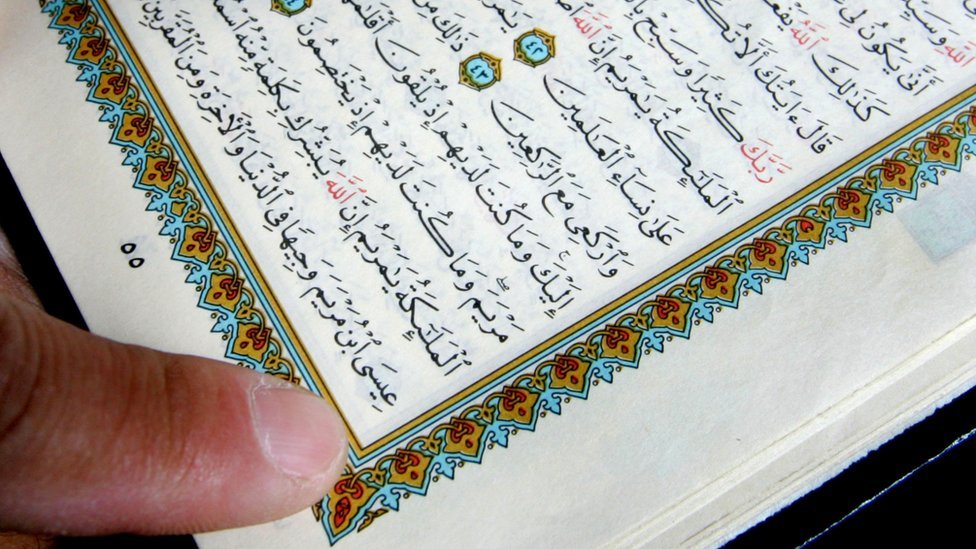 ٱللَّهِ
أَنَّىٰ يَكُونُ لِى
كَذَٰلِكَ ٱللَّهُ يَفْعَلُ
قَالَ ءَايَتُكَ أَلَّا
رَّبَّكَ كَثِيرًا وَسَبِّحْ
ٱلْمَلَٰٓئِكَةُ يَٰمَرْيَمُ إِنَّ ٱللَّهَ
عَلَىٰ نِسَآءِ ٱلْعَٰلَمِينَ ٤٢
وَٱرْكَعِى مَعَ ٱلرَّٰكِعِينَ ٤٣ ذَٰلِكَ مِنْ
إِلَيْكَ وَمَا كُنتَ لَدَيْهِمْ إِذْ يُلْقُونَ
مَرْيَمَ وَمَا كُنتَ لَدَيْهِمْ إِذْ يَخْتَصِمُونَ
ٱلْمَلَٰٓئِكَةُ يَٰمَرْيَمُ إِنَّ ٱللَّهَ يُبَشِّرُكِ بِكَلِمَةٍ مِّنْهُ
عِيسَى ٱبْنُ مَرْيَمَ وَجِيهًا فِى ٱلدُّنْيَا وَٱلْءَاخِرَةِ وَمِنَ ٱلْمُقَرَّبِينَ
٥٥